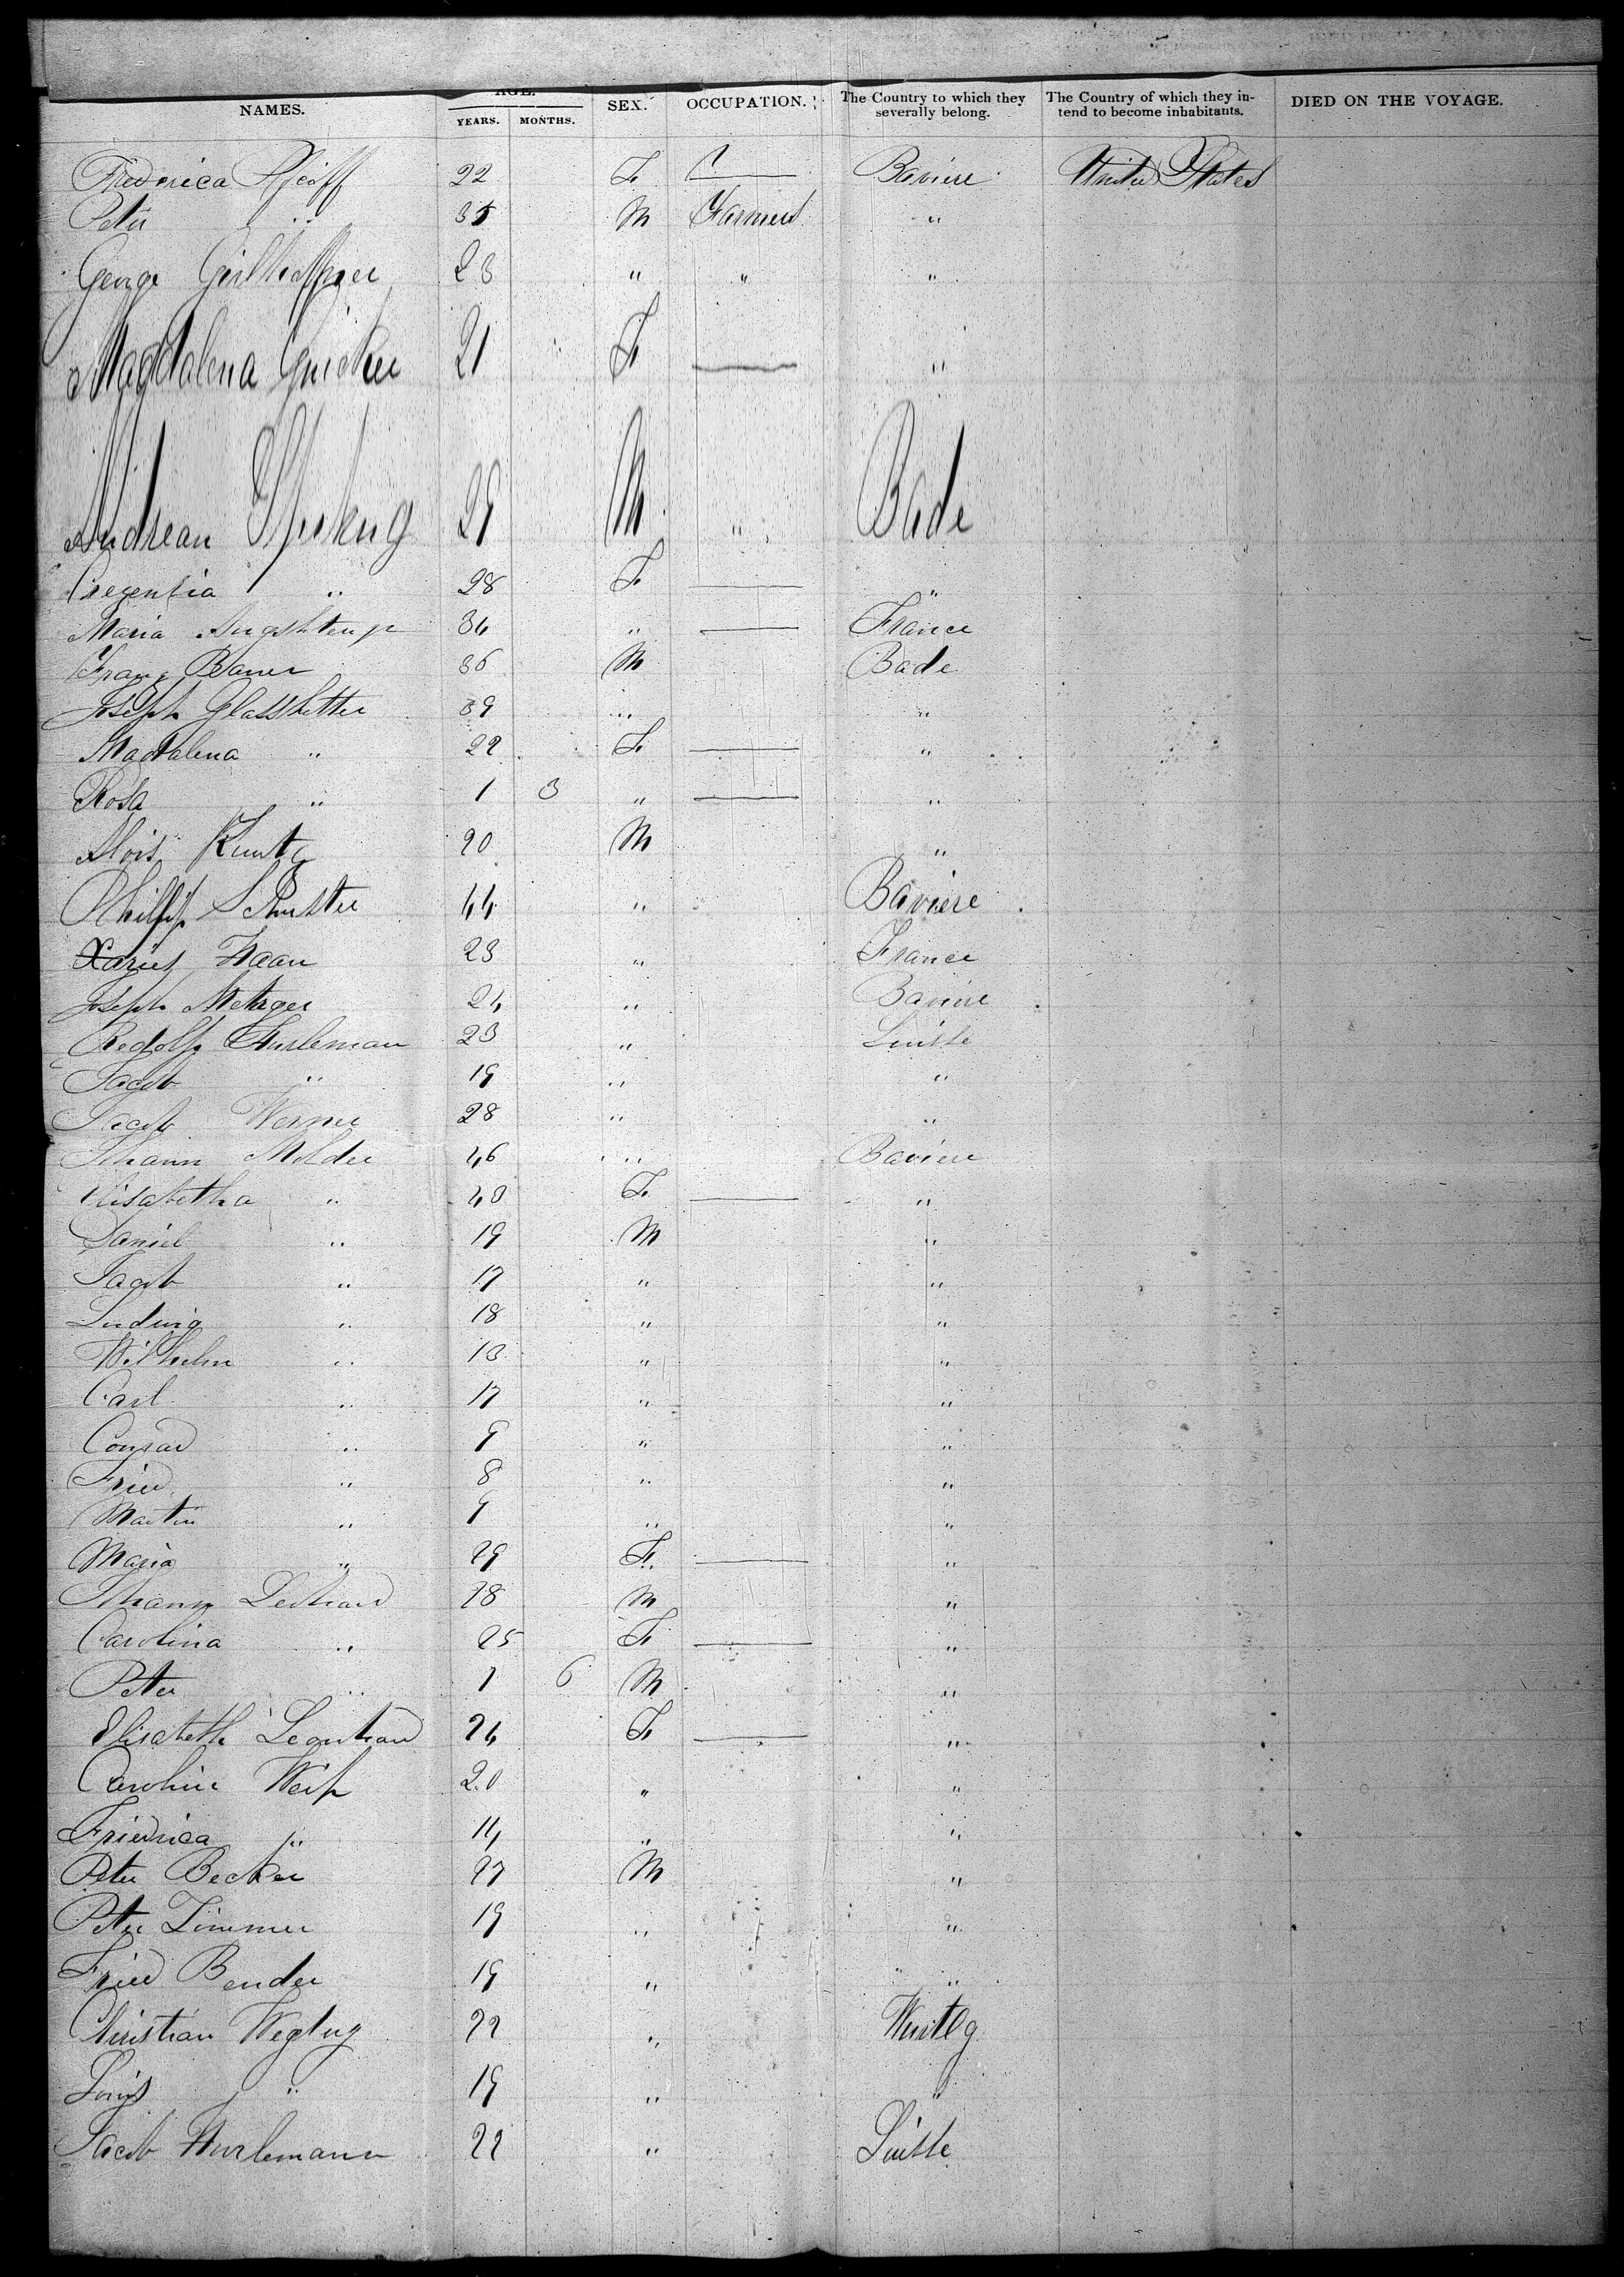 NAMES. AGE. SEX. OCCUPATION. The Country to which they severally belong. The Country of which they intend to become inhabitants. DIED ON THE VOYAGE.
YEARS. MONTHS.
Frederica Pfeiff 22 F Baviere United States
Peter " 35 M Farmers "
George 23 " " "
Magdalena 21 F "
Andreas 29 M " Bade
Cregentia " 28 F "
Maria 34 " France
Franz Bauer 36 M Bade
Joseph Glasstetter 39 " "
Magdalena " 22 F "
Rosa " 1 3 " "
Alois Kuntz 20 M "
Phillip Schuster 44 " Baviere
Haan 23 " France
Joseph Metzger 24 " Baviere
Rodolfe Hurleman 23 " Suisse
Jacob " 19 " "
Jacob Werner 28 " "
Johann Molder 46 " Baviere
Elisabetha " 40 F "
Daniel " 19 M "
Jacob " 17 " "
Ludwig " 18 " "
Wilhelm " 13 " "
Carl " 17 " "
Conrad " 9 " "
Fried " 8 " "
Martin " 9 " "
Maria " 29 F "
Johann 28 M "
Carolina " 25 F "
Peter " 1 6 M "
Elisabeth 24 F "
Caroline Weiß 20 " "
Friedrica " 14 " "
Peter Becker 27 M "
Peter Zimmer 19 " "
Fried Bender 19 " "
Christian 22 " Wurtbg
Louis " 19 " "
Jacob Hurlemann 22 " Suisse